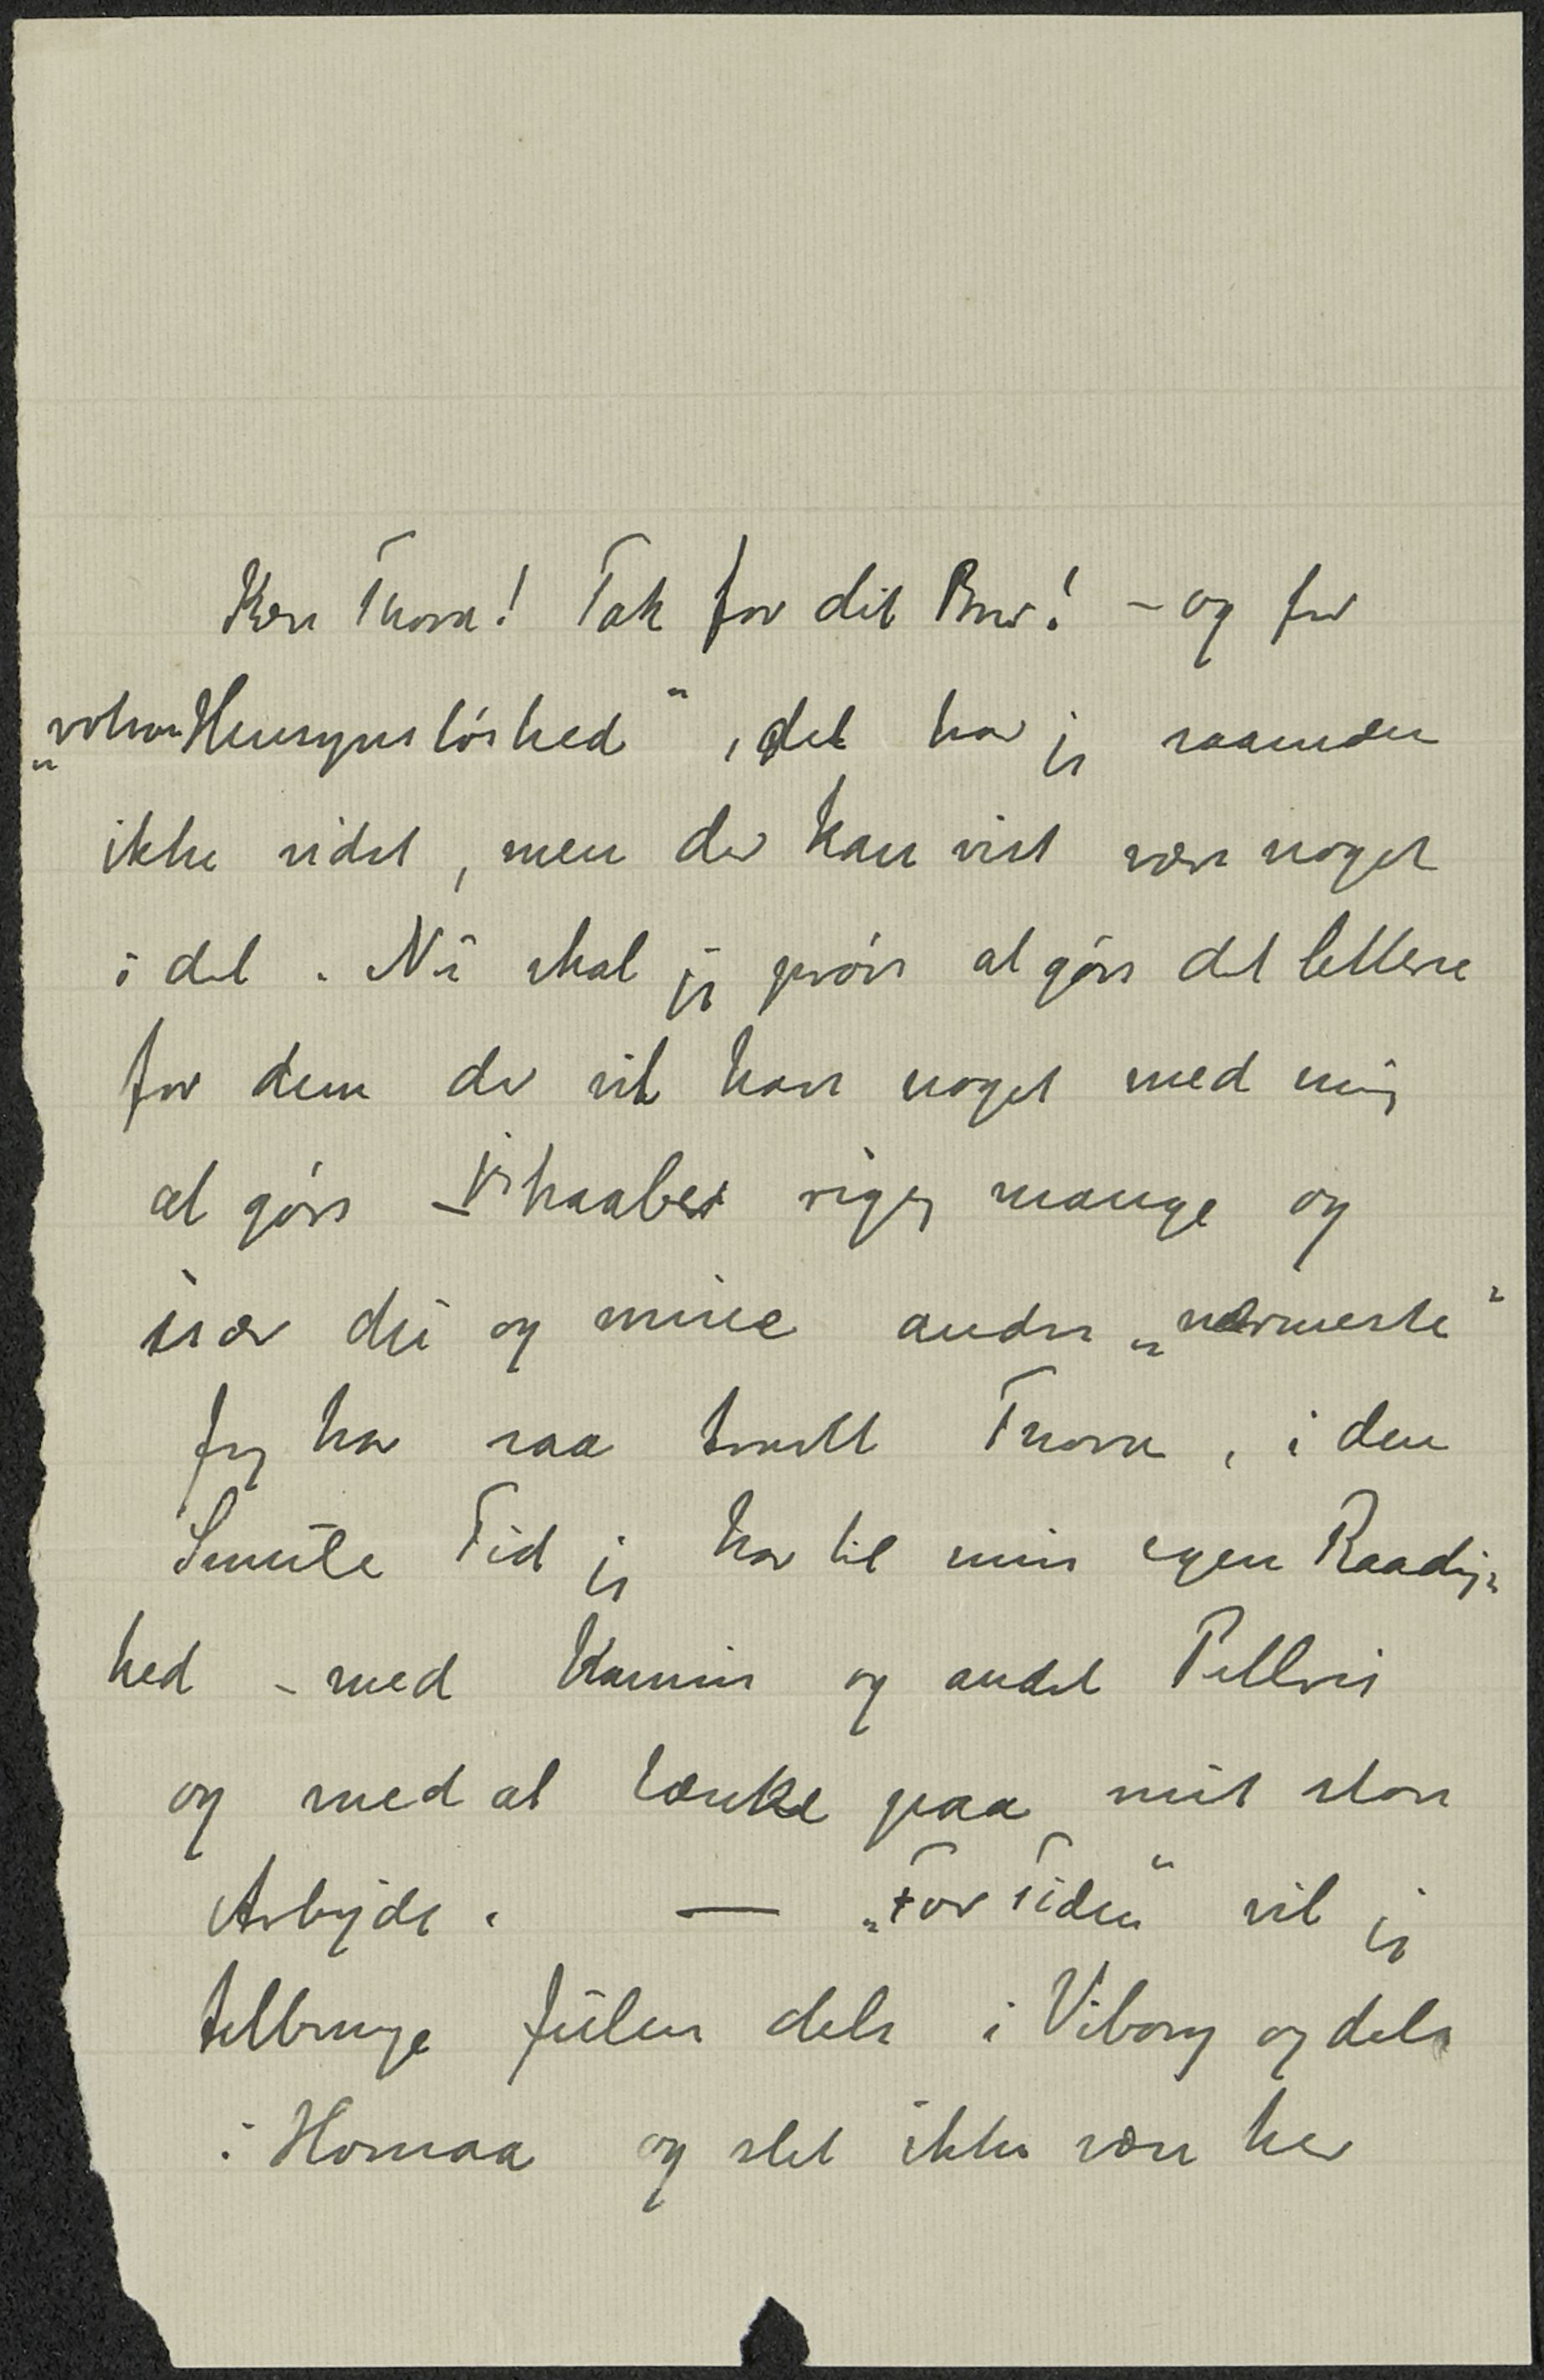 Kere Thora! Tak for dit Brev! – og for
„voksen Hensynsløshed“, det har jeg saamæn
ikke vidst, men der kan vist være noget
i det. Nu skal jeg prøve at gøre det lettere
for dem der vil have noget med mig
at gøre – jeg haaber rigtig mange og
især du og mine andre „nærmeste“
Jeg har saa travlt Thora, i den
Smule Tid jeg har til min egen Raadig-
hed – med Kamin og andet Pilleri
og med at tænke paa mit store
Arbejde. — „For Tiden“ vil jeg
tilbringe Julen dels i Viborg og dels
i Hornaa og slet ikke være her